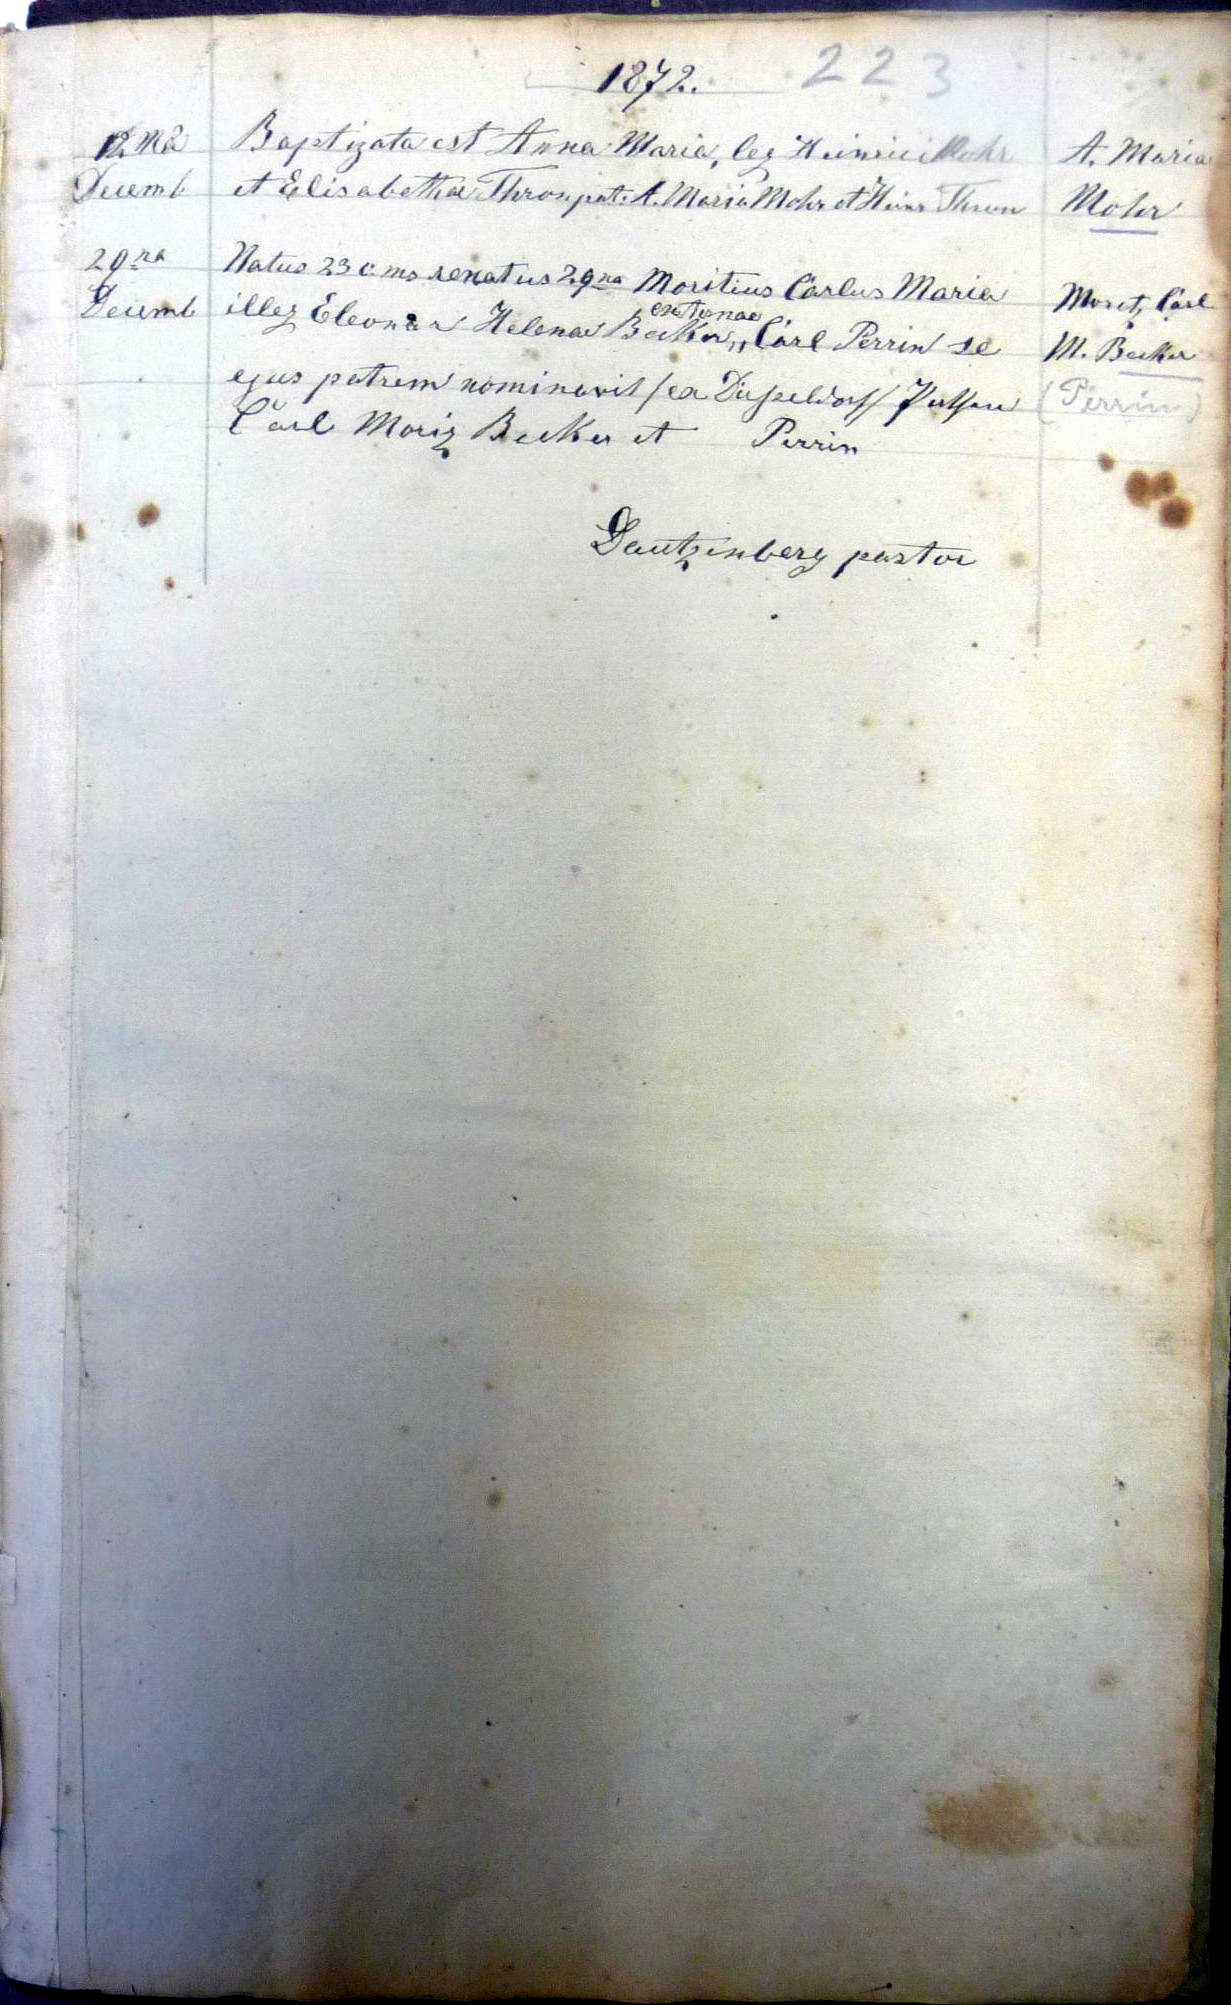 1872. 223
12ma Baptizata est Anna Maria, leg Heinrici Mohr A. Maria
Decemb et Elisabethae Thron, pat: A. Maria Mohr et Heinr Thron Mohr
29na Natus 23 c. ms renatus 29na Moritius Carlus Maria
Decemb illeg Eleonor Helenae Becker, Carl Perrin se Moritz Carl
M. Becker
ejus patrem nominavit /ex Düsseldorf/ (Perrin)
Carl Moriz Becker et Perrin
Dautzenberg pastor